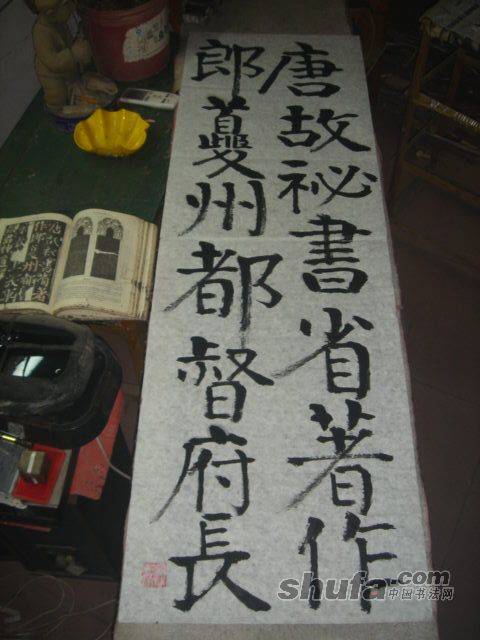 唐故祕書省著作
郎夔州都督府長
shufa.com
中国书法网